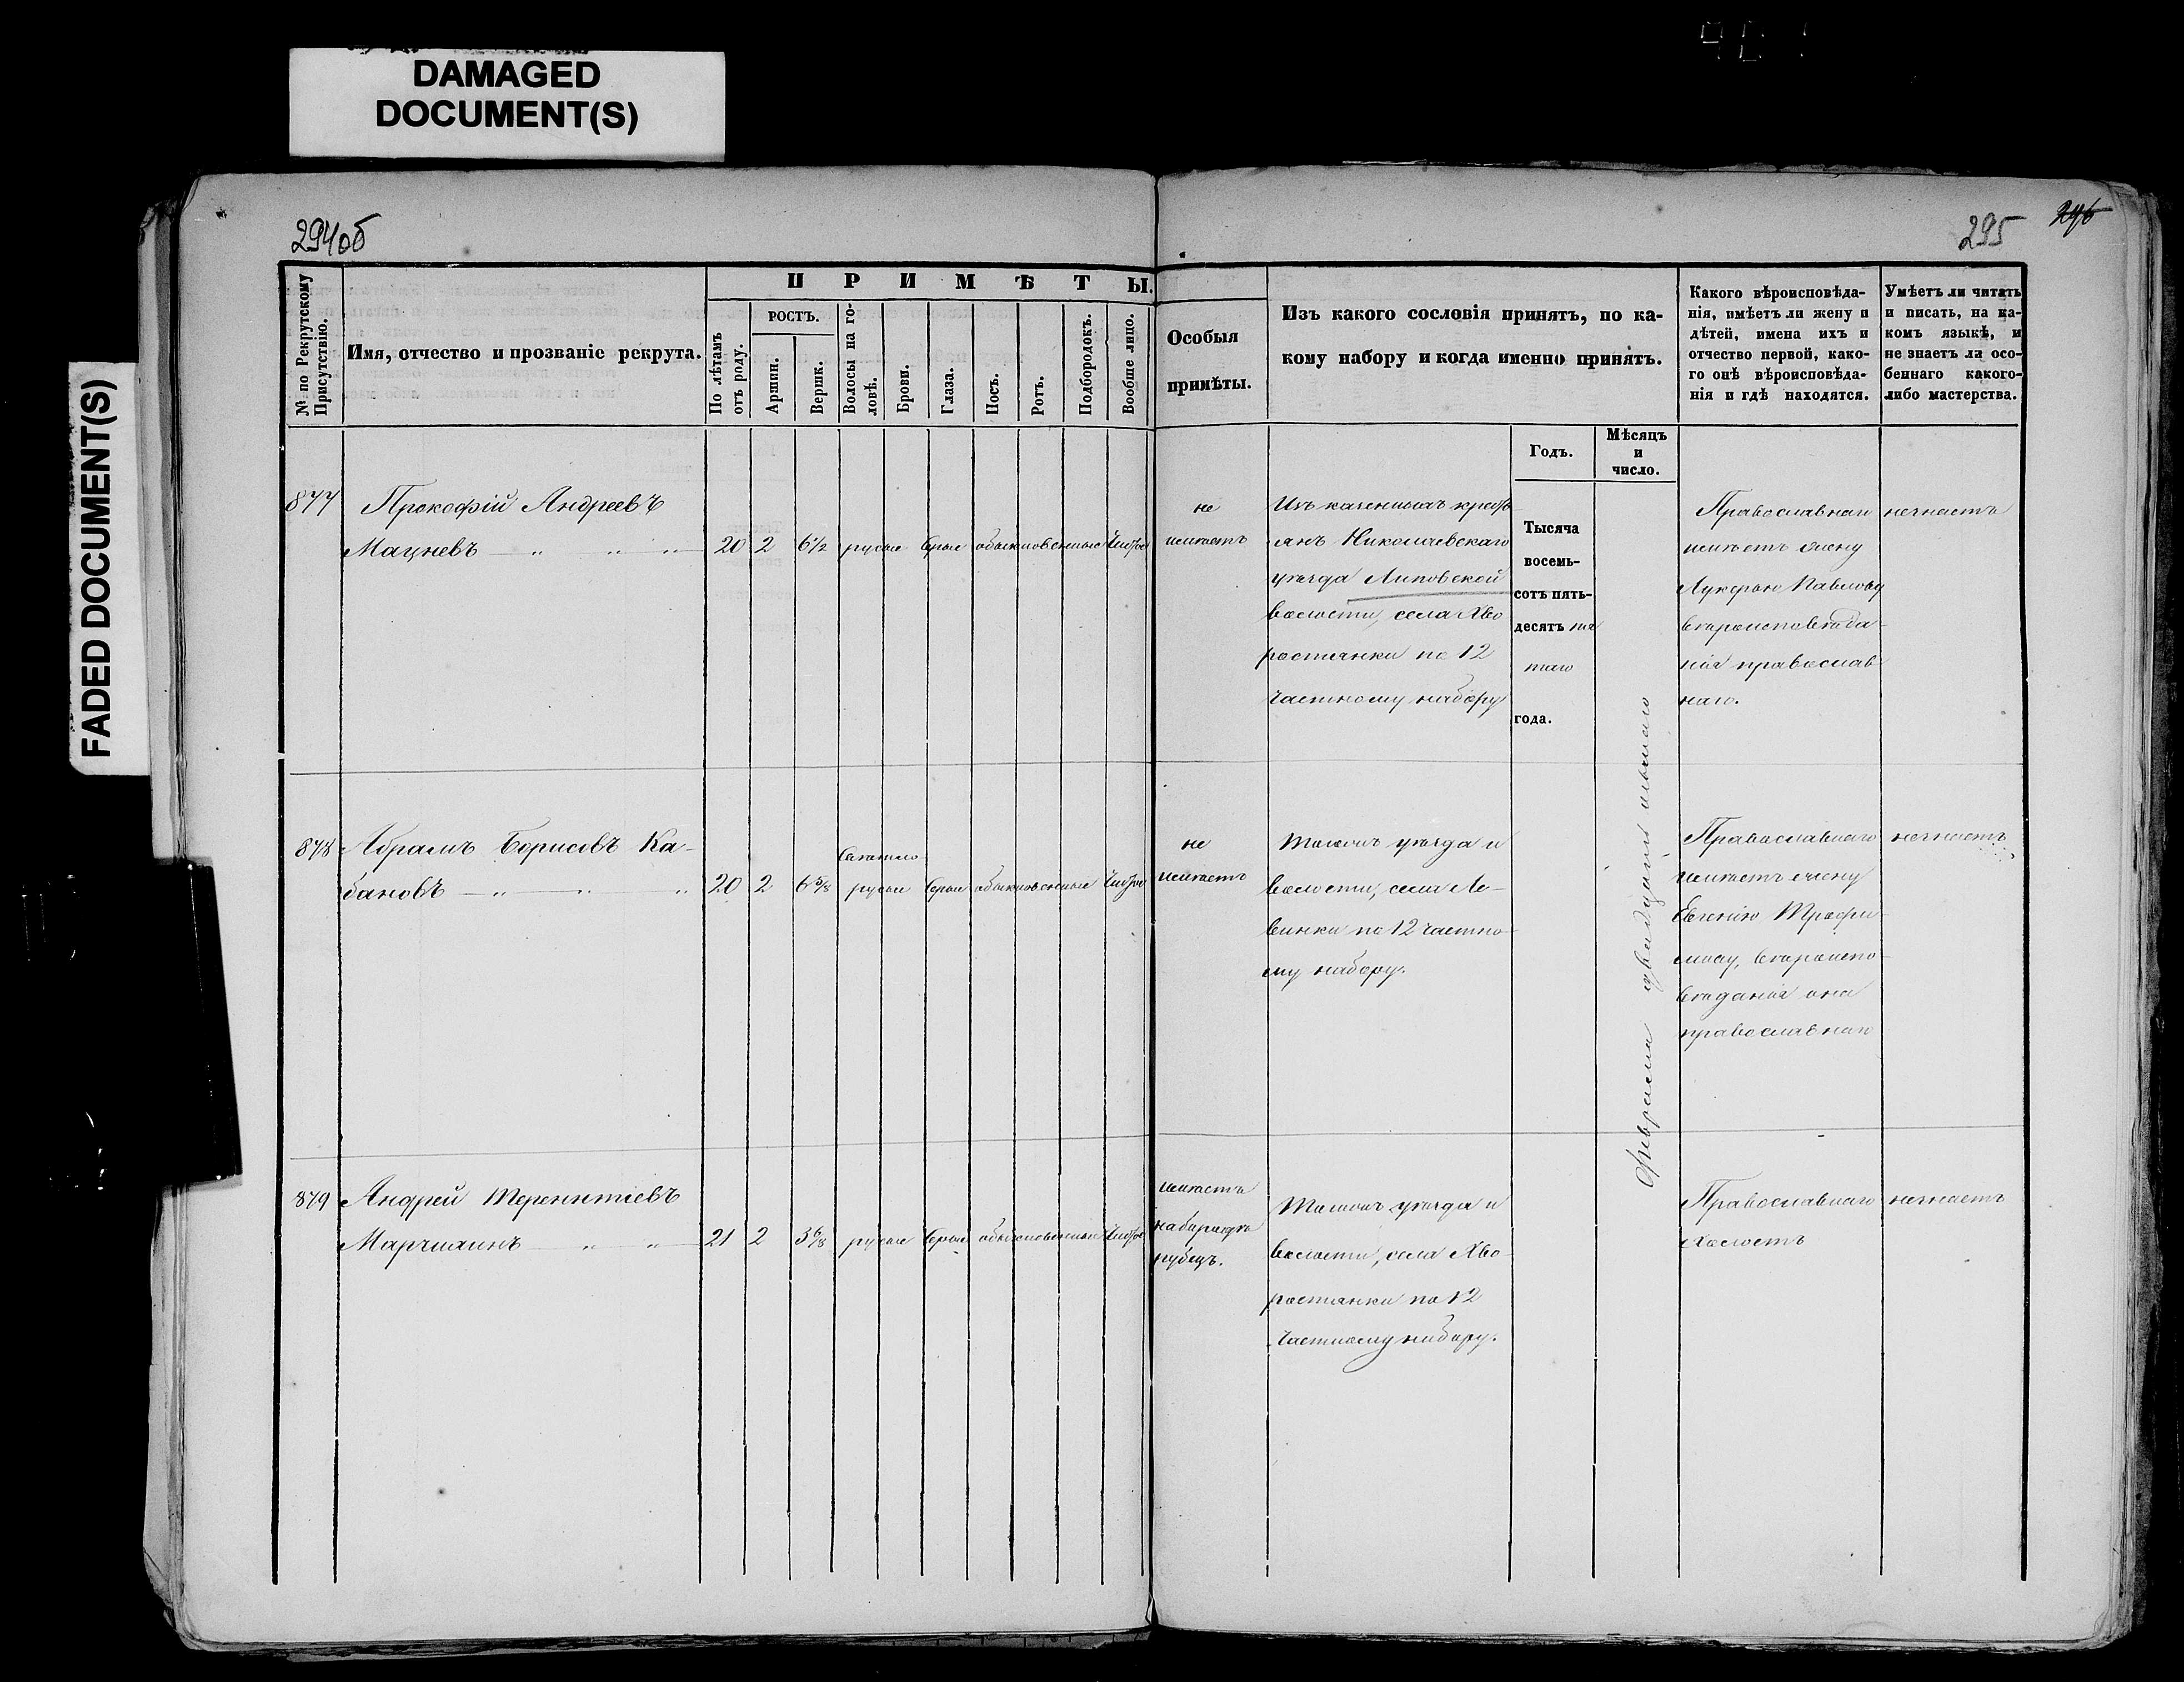 DAMAGED
DOCUMENT(S)
FADED DOCUMENT(S)
294об
295
№ по Рекрутскому
Присутствію.
Имя, отчество и прозваніе рекрута.
ПРИМѢТЫ.
По лѣтамъ
отъ роду.
РОСТЪ.
Аршин.
Вершк.
Волосы на го-
ловѣ.
Брови.
Глаза.
Носъ.
Ротъ.
Подбородокъ.
Вообще лицо.
Особыя
примѣты.
Изъ какого сословія принятъ, по ка-
кому набору и когда именно принятъ.
Какого вѣроисповѣда-
нія, имѣетъ ли жену и
дѣтей, имена ихъ и
отчество первой, како-
го онѣ вѣроисповѣда-
нія и гдѣ находятся.
Умѣетъ ли читать
и писать, на ка-
комъ языкѣ, и
не знаетъ ли осо-
беннаго какого-
либо мастерства.
Годъ.
Мѣсяцъ
и
число.
877
Прокофій Андреевъ
Мацневъ — „ „ „
20 2 6½ русые серые обыкновенные чистое
не
имѣетъ
Изъ казенныхъ кресть
янъ Николаевскаго
уѣзда Липовской
волости, села Хво
ростянки по 12
частному набору
Тысяча
восемь-
сотъ пять-
десятъ пя
таго
года.
Февраля двадцать осьмаго
Православнаго
имѣетъ жену
Лукерью Павлову
вѣроисповѣда-
нія православ
наго.
незнаетъ
878
Абрамъ Борисовъ Ка-
бановъ — „ — „ „
20 2 6⅝ Светло
русые серые обыкновенные чистое
не
имѣетъ
Такомъ уѣзда и
волости, села Ле-
винки по 12 частно-
му набору.
Православнаго
имѣетъ жену
Евгенію Трофи-
мову, вѣроиспо-
вѣданія она
православнаго
незнаетъ
879
Андрей Терентіевъ
„ „
21 2 3 6/8 русые серые обыкновенные чистое
имѣетъ
рубецъ.
уѣзда и
волости, села Хво-
ростянки по 12
частному набору.
Православнаго
Холостъ
незнаетъ